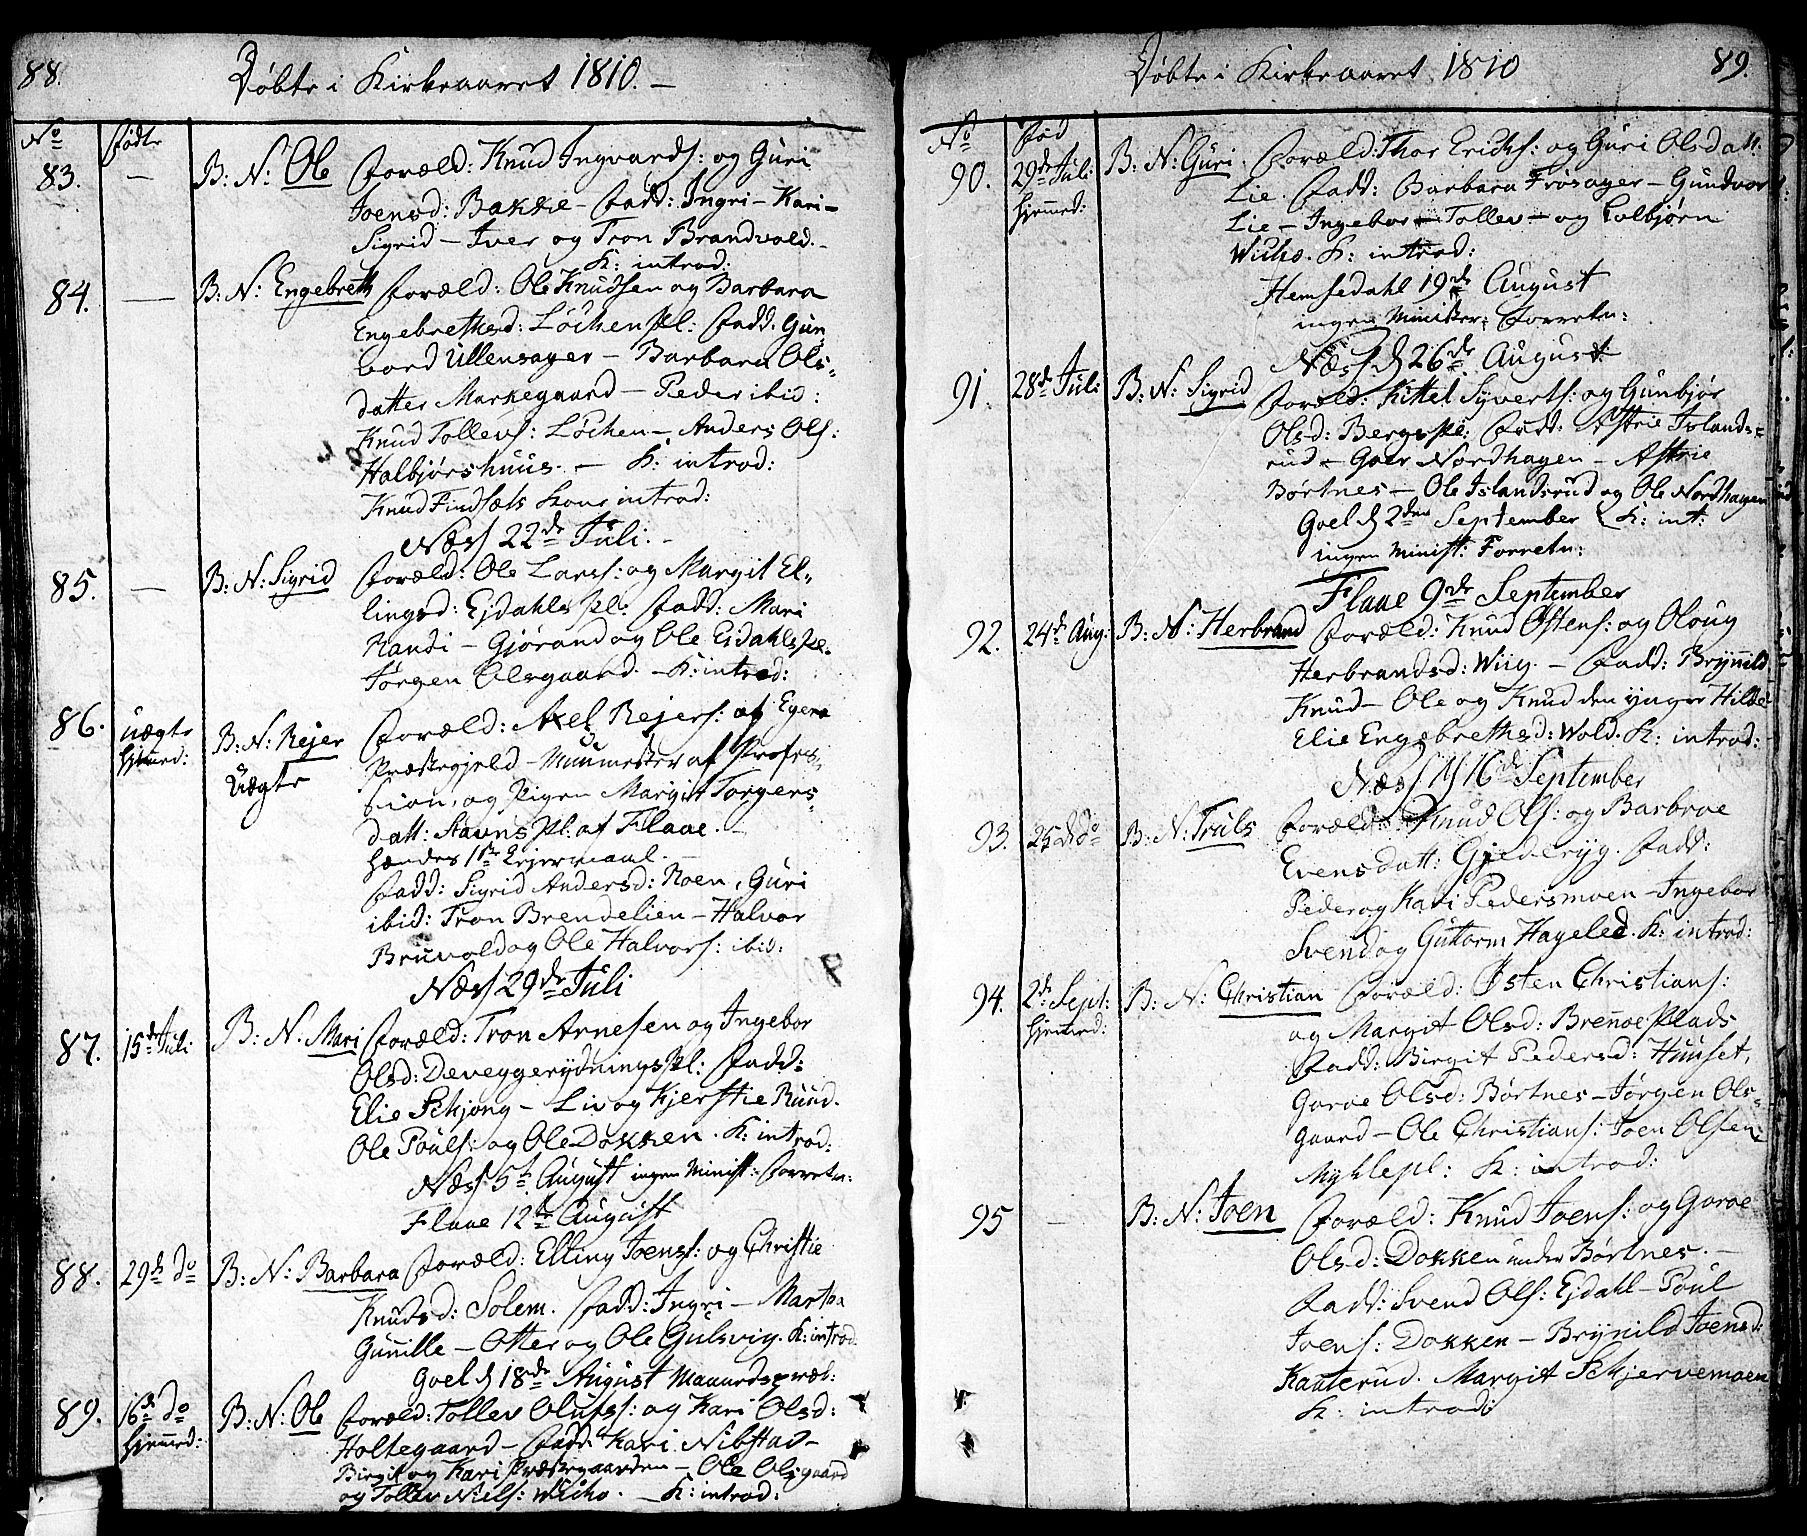 88.
Døbte i Kirkeaaret 1810. —
No
fødte
83.
—
B: N: Ole foræld: Knud Ingvards: og Guri
Joensd: Bakke — fadd: Ingri — Kari —
Sigrid — Iver og Tron Brandvold. —
K: introd:
84.
—
B: N: Engebreth foræld: Ole Knudsen og Barbara
Engebrethsd: Løchen pl: fadd. Gun„
vord Ullensager — Barbara Ols„
datter Markegaard — Peder ibid:
Knud Tollevs: Løchen — Anders Ols:
Halbjørshuus. — K: introd:
Knud Findsæts Kone introd:
Næss 22de Juli. —
85.
—
B: N: Sigrid foræld: Ole Larss: og Margit El„
lingsd: Ejdahls pl: fadd: Mari
Randi — Gjørand og Ole Eidahlspl.
Jørgen Olsgaard. — K: introd:
86.
uægte
hjemmed:
B: N: Rejer
Uægte
foræld: Axel Rejers: af Egers
Præstegjeld — Muurmester af Profes„
sion, og Pigen Margit Torgers„
datt: Stavns Pl: af Flaae. —
hændes 1ste Lejermaal. —
fadd: Sigrid Andersd: Roen, Guri
ibid: Tron Brendelien — Halvor
Bruvold og Ole Halvors: ibid:
Næss 29de Juli
87.
15de Juli
B: N: Mari foræld: Tron Arnesen og Ingebor
Olsd: Deveggerydnings Pl: fadd:
Elie Schjong — Liv og Kjerstie Ruud.
Ole Pouls: og Ole Dokken. K: introd:
Næss 5te August ingen Minist: Forretn:
Flaae 12te August
88.
29de do
B: N: Barbara foræld: Elling Joenss: og Christie
Knudsd: Solem. fadd: Ingri — Marta
Gunille — Otter og Ole Gulsvig. K: introd.
Goel d 18de August Maaurdspræk:
89.
16de do
hjemmed:
B: N: Ole foræld: Tollev Olufss: og Kari Olsd:
Holtegaard — fadd: Kari Nibstad —
Birgit og Kari Præstegaarden — Ole Olsgaard
og Tollev Niels: Wicho. — K: introd:
89.
Døbte i Kirkeaaret 1810
No
fød
90.
29de Juli
hjemmed:
B: N: Guri. foræld: Thor Erichs: og Guri Olsdatt:
Lie. fadd: Barbara Frøsager — Gundvor
Lie — Ingebor — Tollev — og Colbjørn
Wicho. K: introd:
Hemsedahl 19de August
ingen Minister: Forretn:
Næss d 26de August
91.
28de Juli
B: N: Sigrid
foræld: Kittel Syverts: og Gunbjør
Olsd: Bergspl: fadd: Astrie Islands=
rud — Goer Nordhagen — Astrie
Børtnes — Ole Islandsrud og Ole Nordhagen
Goel d 2den September K: int:
ingen Minist: Forretn:
Flaae 9de September
92.
24de Aug:
B: N: Herbrand foræld: Knud Østens: og Oloug
Herbrandsd: Wiig. — fadd: Brynild
Knud — Ole og Knud den ynger Hilde
Elie Engebrethsd: Wold. K: introd:
Næss d 16de September
93.
25de do
B: N: Truls foræld: Knud Ols: og Barbroe
Evensdatt: Gjederyg. fadd:
Peder og Kari Pedersmoen — Ingebor
Svend og Guttorm Hageled. K: introd:
94.
2de Sept:
hjemmed:
B: N: Christian foræld: Østen Christians:
og Margit Olsd: Brenoe Plads
fadd: Birgit Pedersd: Huuset,
Goroe Olsd: Børtnes — Jørgen Ols=
gaard — Ole Christians: Joen Olsen
Myklepl: K: introd:
95
—
B: N: Joen foræld: Knud Joens: og Goroe
Olsd: Dokken under Børtnes. —
fadd: Svend Ols: Ejdahl — Poul
Joens: Dokken — Brynild Joensd:
Kauterud. Margit Schjervemoen
K: introd: